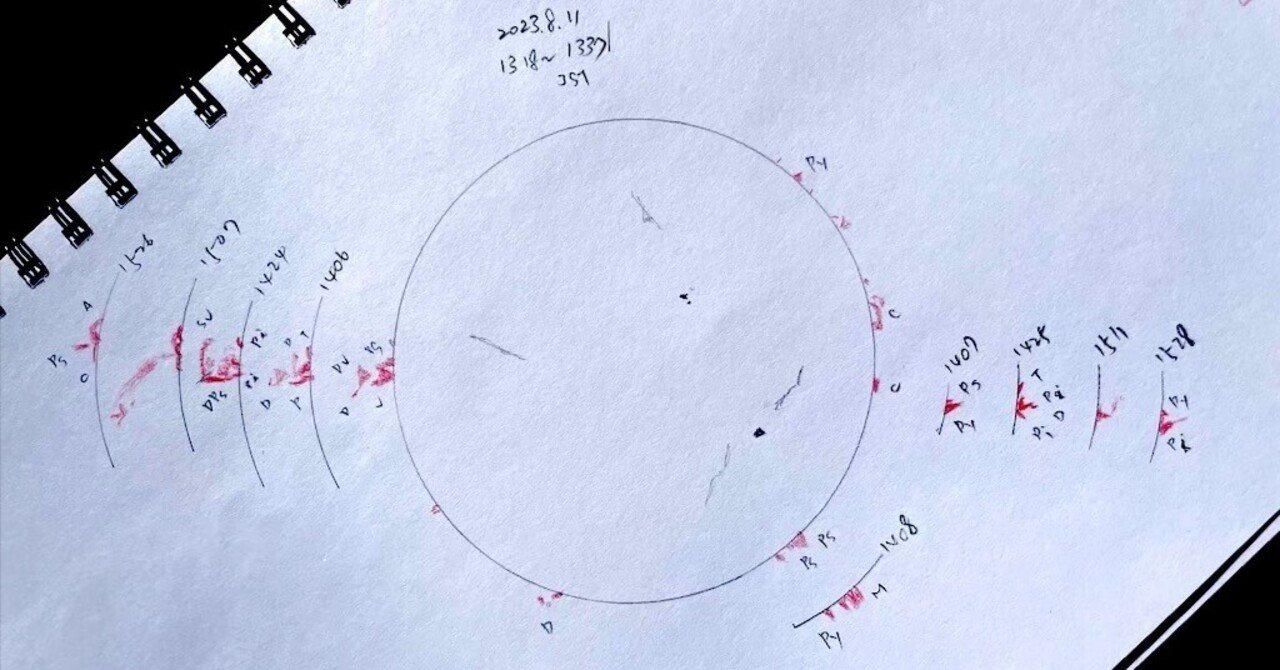 2023.8.11
1318~1337
JST
Py
C
C
1526
1507
1424
1406
A
Ps
O
SV
DPs
Pi
Pi
P T
D
P
DV
Ps
D
V
1407
Ps
Py
1425
T
Pi
D
Pi
1511
1528
Py
Pi
Ps
Ps
1408
M
Py
D